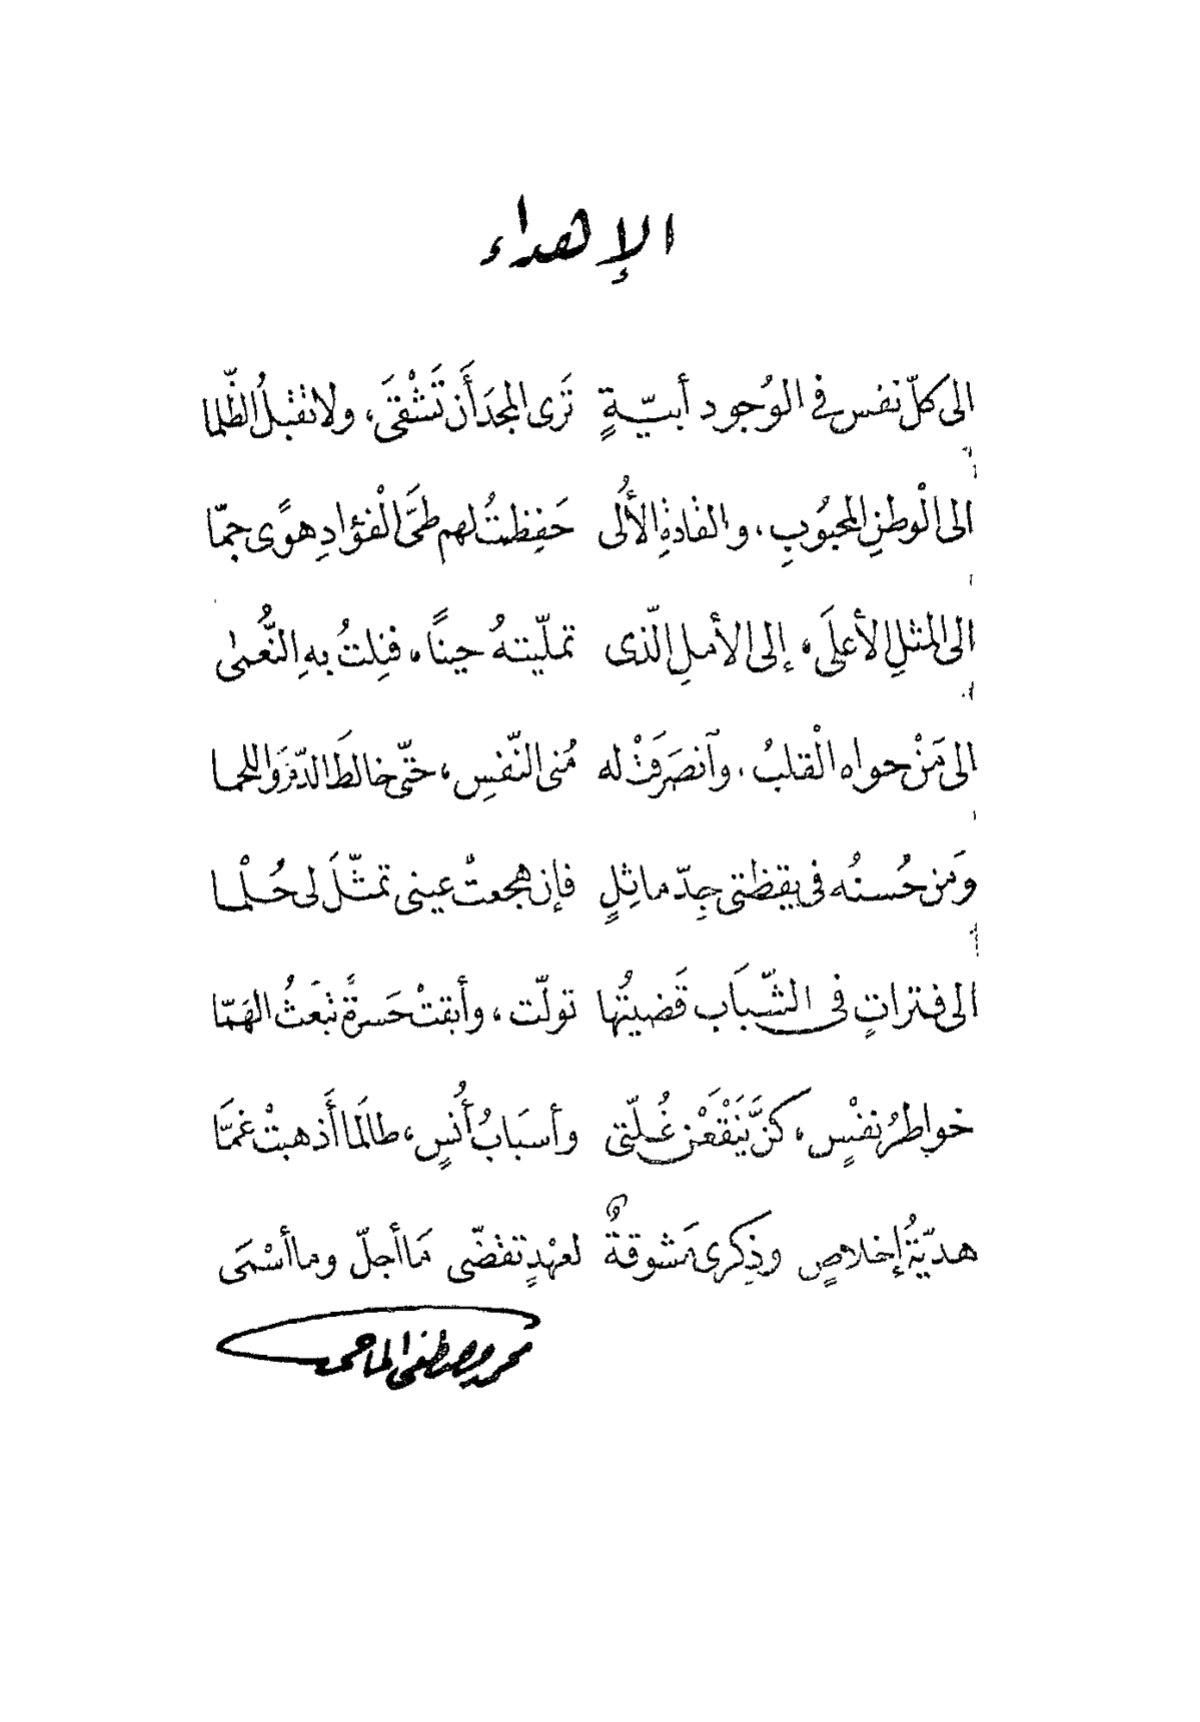 الإهداء
الى كلّ نفس في الوُجود أبيّةٍ تَرى المجدَ أَن تَشْقَى، ولا تقبلُ الظّلما
الى الْوطنِ المحبُوبِ، والقادةِ الأُلى حَفِظتُ لهم طىَّ الْفؤادِ هوًى جمّا
الى المثلِ الأعلَى، إلى الأملِ الّذى تملّيتهُ حينًا، فنِلتُ بهِ النُّعمى
الى مَنْ حواه الْقلبُ، وٱنصَرَفَتْ له مُنى النّفسِ، حتّى خالطَ الدّمَ واللحما
ومَن حُسنُه فى يقظتى جِدّ ماثِلٍ فإن هجعتْ عينى تمثّلَ لى حُلْما
الى فتراتٍ فى الشّبَاب قَضيتُها تولّت، وأبقتْ حَسرةً تبعَثُ الهَمّا
خواطرُ نفْسٍ، كنَّ يَنْقَعْن غُلّتى وأسبَابُ أُنسٍ، طالَما أَذهبتْ غمَّا
هديّةُ إخلاصٍ وذِكرى مَشوقةٌ لعهْدٍ تقضّى مَا أجلّ وما أسْمَى
محمد مصطفى الماحى